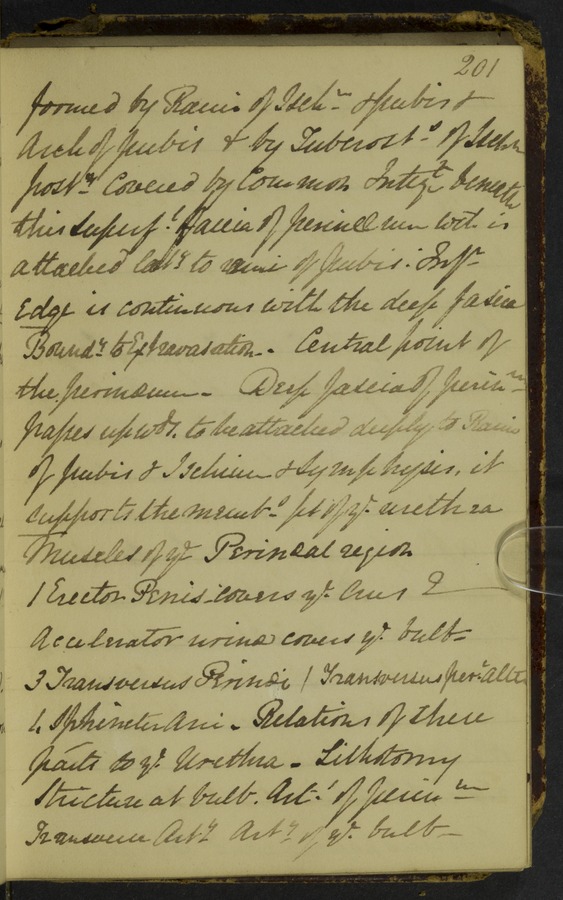 201
formed by Rami of Isch.m & pubis &
Arch of pubis & by Tuberost.s of Isch.m
post.y Covered by Common Integ.t beneath
this superf.l fascia of perinæum wch. is
attached lat.y to rami of pubis. Inf.r
Edge is continuous with the deep fascia
Bound.y to Extravasation. Central point of
the perinæum. Deep fascia of perin.m
passes upwds. to be attached deeply to Rami
of pubis & Ischium & Symphysis, it
supports the memb.s pt of ye. urethra
Muscles of ye. Perineal region
1 Erector Penis covers ye. Crus 2
Accelerator urinæ covers ye. bulb
3 Transversus Perinæi / Transversus per. alter
4 Sphincter Ani - Relations of these
parts to ye. Urethra - Lithotomy
Stricture at bulb. Art.l of perin.m
Transverse Art.y Art.y of ye. bulb